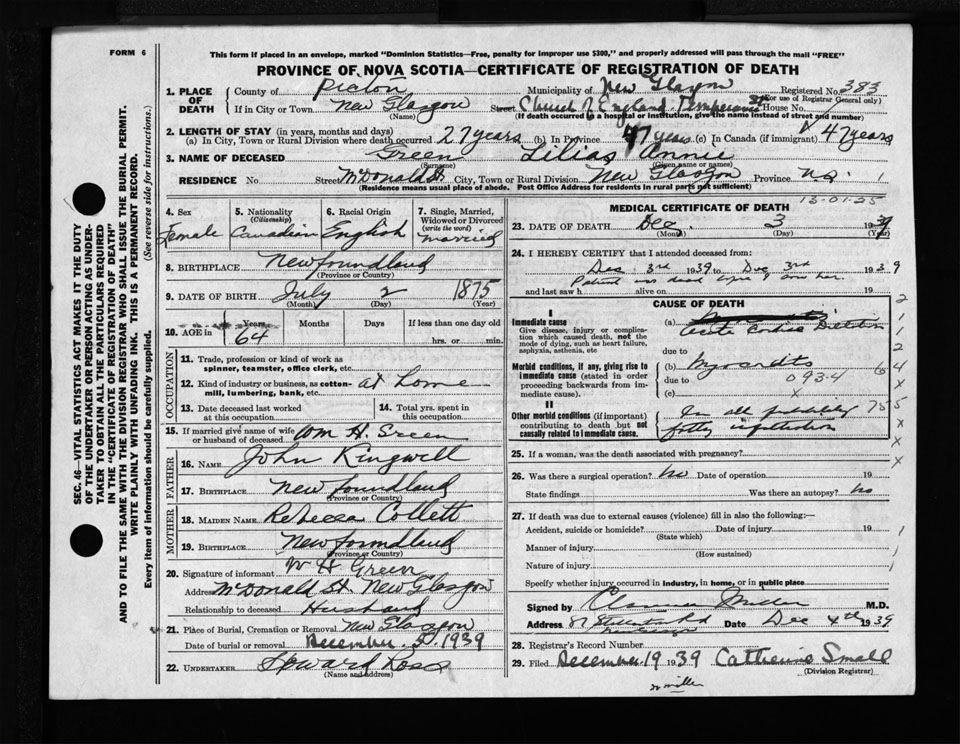 FORM 6
This form if placed in an envelope, marked "Dominion Statistics—Free, penalty for improper use $300," and properly addressed will pass through the mail "FREE"
PROVINCE OF NOVA SCOTIA—CERTIFICATE OF REGISTRATION OF DEATH
SEC. 46—VITAL STATISTICS ACT MAKES IT THE DUTY
OF THE UNDERTAKER OR PERSON ACTING AS UNDER-
TAKER TO OBTAIN ALL THE PARTICULARS REQUIRED
IN THE "CERTIFICATE OF REGISTRATION OF DEATH"
AND TO FILE THE SAME WITH THE DIVISION REGISTRAR WHO SHALL ISSUE THE BURIAL PERMIT.
WRITE PLAINLY WITH UNFADING INK. THIS IS A PERMANENT RECORD.
Every item of information should be carefully supplied. (See reverse side for instructions.)
1. PLACE OF DEATH County of Pictou Municipality of New Glasgow Registered No. 383
(For use of Registrar General only)
If in City or Town New Glasgow Street Church of England. Temperance St House No.
(Name) (If death occurred in a hospital or institution, give the name instead of street and number)
2. LENGTH OF STAY (in years, months and days)
(a) In City, Town or Rural Division where death occurred 27 years (b) In Province 47 years (c) In Canada (if immigrant) 47 years
3. NAME OF DECEASED Green Lilias Annie
(Surname) (Given name or names)
RESIDENCE No. Street McDonald St. City, Town or Rural Division New Glasgow Province N.S.
(Residence means usual place of abode. Post Office Address for residents in rural parts not sufficient)
4. Sex Female
5. Nationality (Citizenship) Canadian
6. Racial Origin English
7. Single, Married, Widowed or Divorced (write the word) married
8. BIRTHPLACE Newfoundland
(Province or Country)
9. DATE OF BIRTH July 2 1875
(Month) (Day) (Year)
10. AGE in Years 64 Months Days If less than one day old hrs. or min.
OCCUPATION
11. Trade, profession or kind of work as spinner, teamster, office clerk, etc.
12. Kind of industry or business, as cotton-mill, lumbering, bank, etc. at home
13. Date deceased last worked at this occupation
14. Total yrs. spent in this occupation
15. If married give name of wife or husband of deceased Wm H. Green
FATHER
16. NAME John Kingwell
17. BIRTHPLACE Newfoundland
(Province or Country)
MOTHER
18. MAIDEN NAME Rebecca Collett
19. BIRTHPLACE Newfoundland
(Province or Country)
20. Signature of informant W H Green
Address McDonald St. New Glasgow
Relationship to deceased Husband
21. Place of Burial, Cremation or Removal New Glasgow
Date of burial or removal December 5 1939
22. UNDERTAKER Howard Ross
(Name and Address)
MEDICAL CERTIFICATE OF DEATH
13-01-25
23. DATE OF DEATH Dec. 3 1939
(Month) (Day)
24. I HEREBY CERTIFY that I attended deceased from:
Dec 3rd 1939 to Dec 3rd 1939
and last saw h alive on 19
CAUSE OF DEATH
I
Immediate cause
Give disease, injury or complication which caused death, not the mode of dying, such as heart failure, asphyxia, asthenia, etc
(a) Acute Cardiac
due to
Morbid conditions, if any, giving rise to immediate cause (stated in order proceeding backwards from immediate cause).
(b)
due to 093-4
(c)
II
Other morbid conditions (if important) contributing to death but not causally related to immediate cause.
In all probability
fatty infiltration
25. If a woman, was the death associated with pregnancy?
26. Was there a surgical operation? no Date of operation 19
State findings Was there an autopsy? no
27. If death was due to external causes (violence) fill in also the following:—
Accident, suicide or homicide? Date of injury 19
(State which)
Manner of injury
(How sustained)
Nature of injury
Specify whether injury occurred in industry, in home, or in public place
Signed by Clarence Miller M.D.
Address Date Dec 4th 1939
28. Registrar's Record Number
29. Filed December 19 1939 Catherine Small
(Division Registrar)